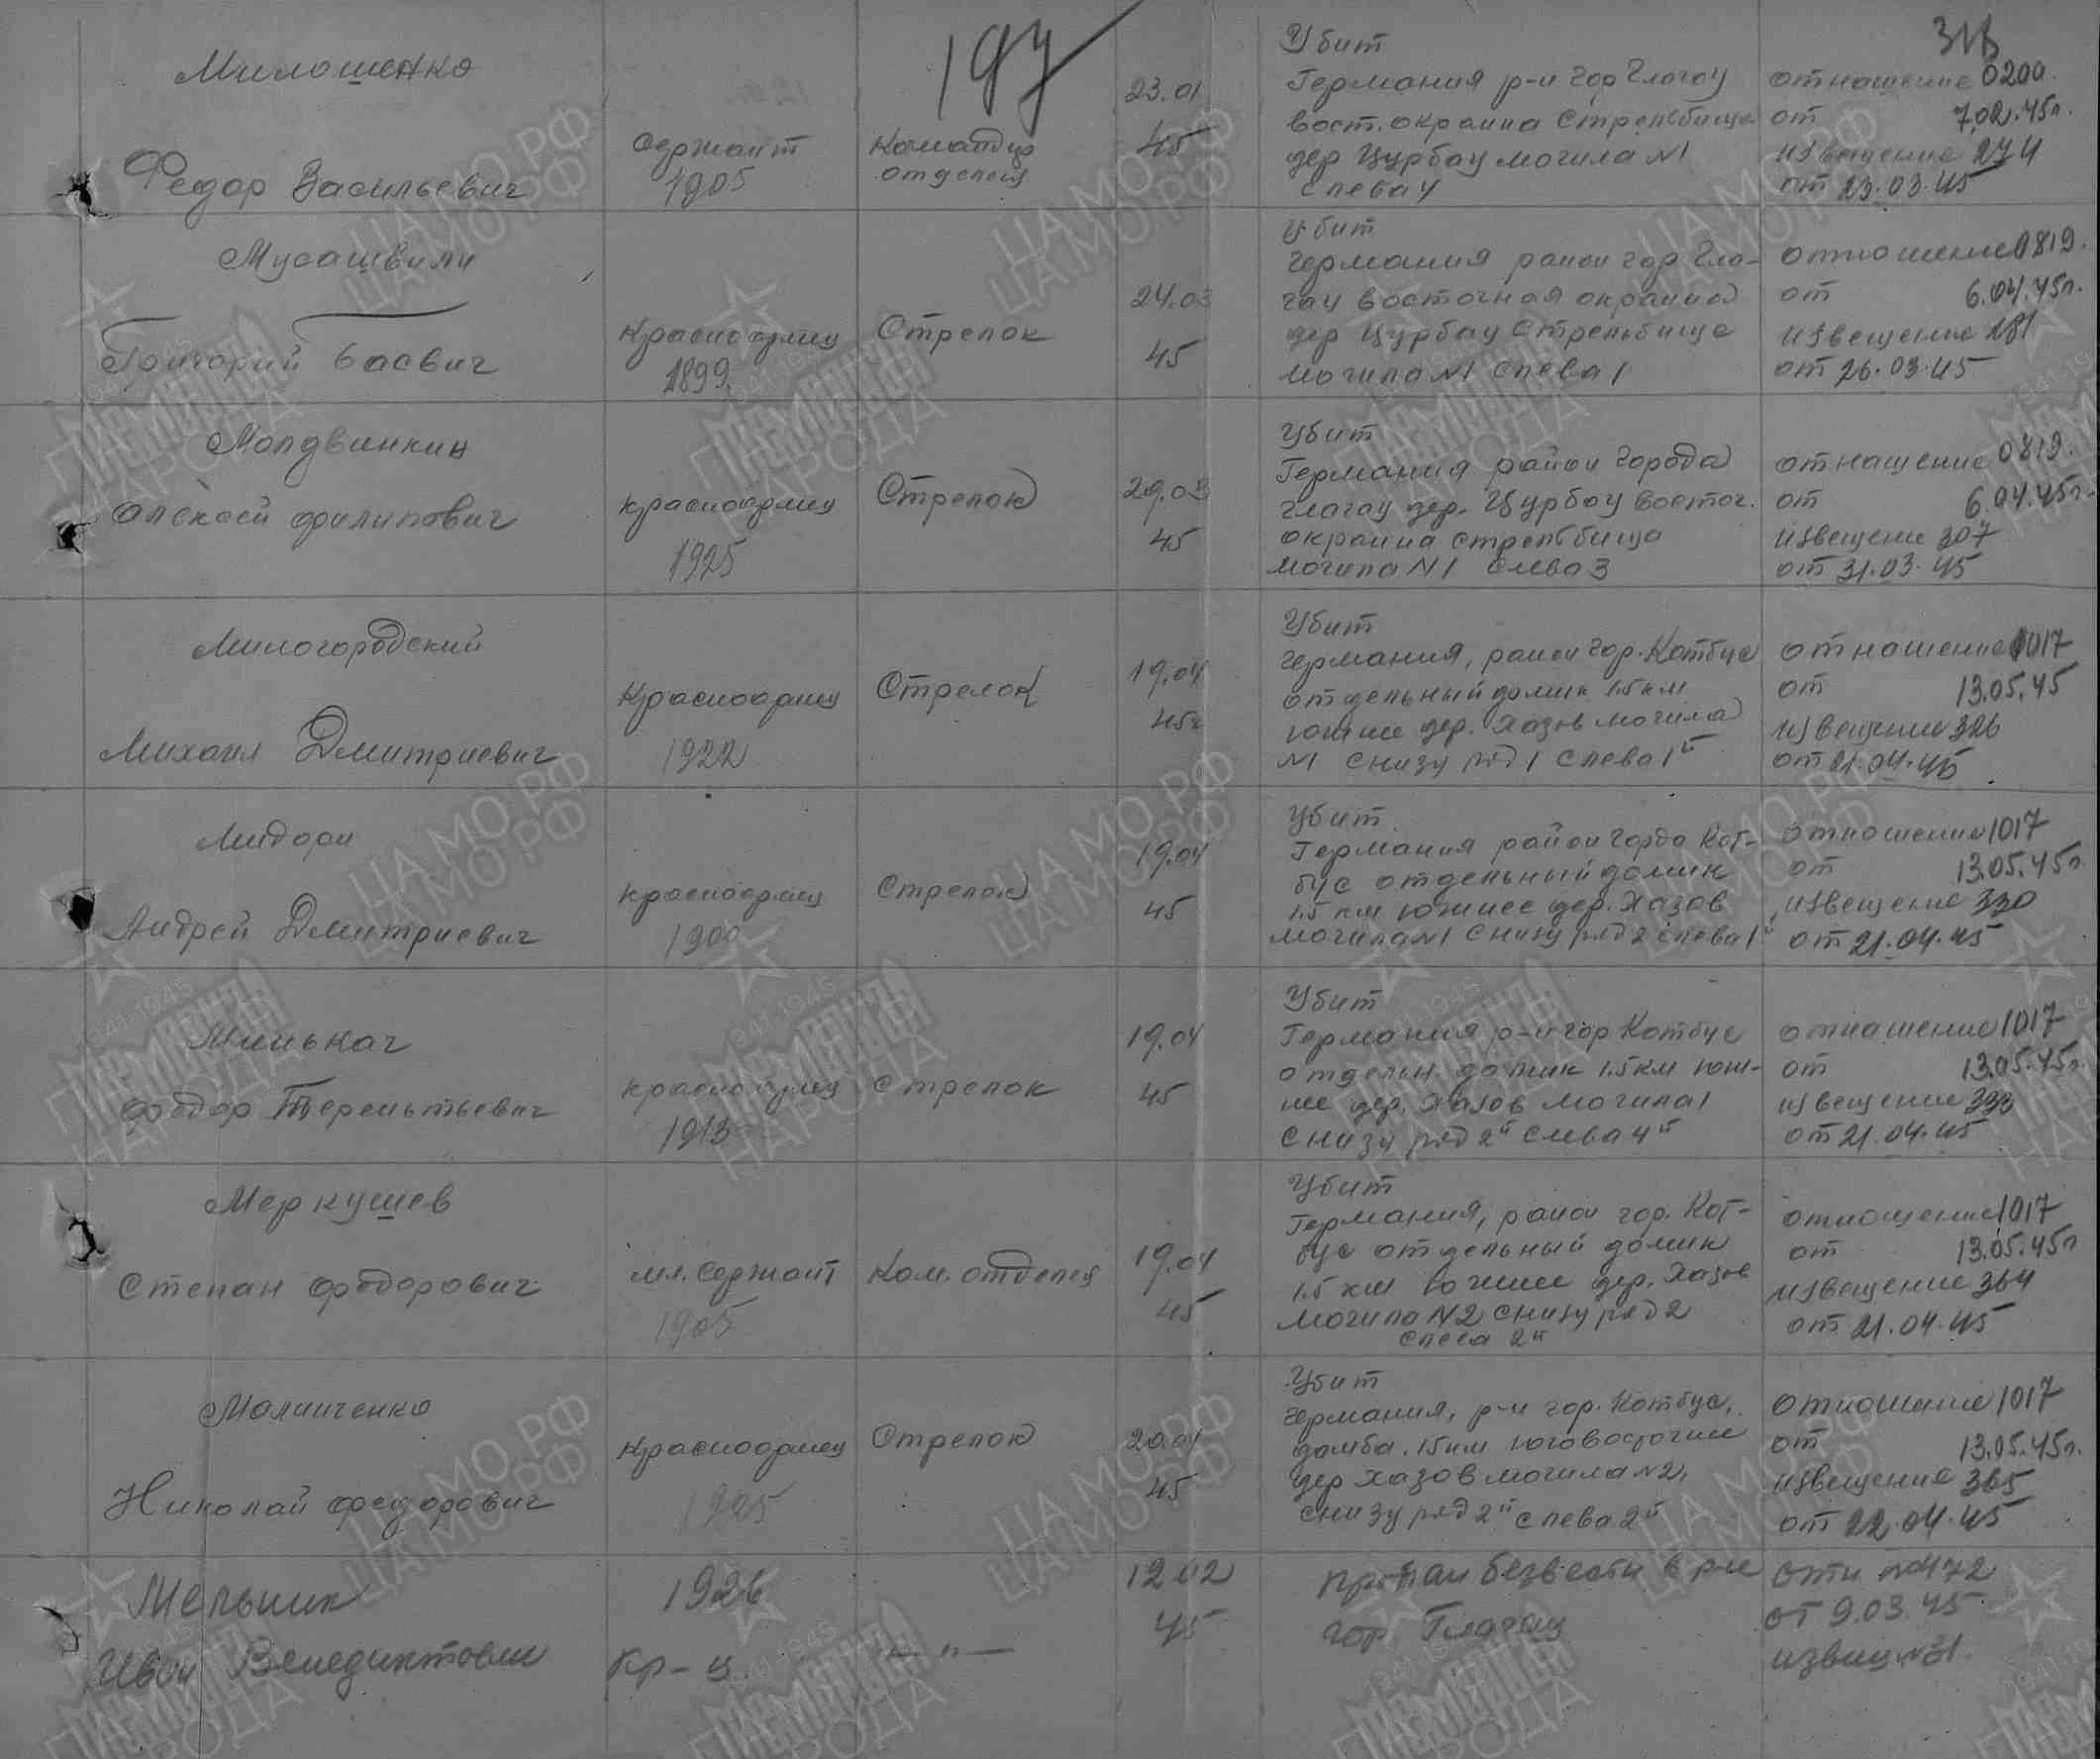 197
318
Милошенко
Федор Васильевич
сержант
1905
Командир
отделен
23.01
45
Убит
Германия р-н гор Глогау
вост. окраина Стрельбище
дер Цурбау могила N1
слева 4
отношение 0200
от 7.02.45г.
извещение 274
от 23.03.45
Мусашвили
Григорий
Красноармец
1899
Стрелок
24.03
45
Убит
Германия район гор Гло-
гау восточная окраина
дер Цурбау Стрельбище
могила N1 слева 1
отношение 0819.
от 6.04.45г.
извещение 281
от 26.03.45
Молдвинкин
Алексей Филипович
красноармец
1925
Стрелок
29.03
45
Убит
Германия район города
Глогау дер. Цурбау восточ.
окраина стрельбища
могила N1 слева 3
отношение 0819.
от 6.04.45г.
извещение 307
от 31.03.45
Милогородский
Михаил Дмитриевич
Красноармец
1922
Стрелок
19.04
45г
Убит
Германия, район гор. Котбус
отдельный домик 1.5 км
южнее дер. Хазов могила
N1 снизу ряд 1 слева 1й
отношение 1017
от 13.05.45
извещение 326
от 21.04.45
Мидори
Андрей Дмитриевич
красноармец
1900
Стрелок
19.04
45
Убит
Германия район горда Кот-
бус отдельный домик
1.5 км южнее дер. Хазов
могила N1 снизу ряд 2 слева 1й
отношение 1017
от 13.05.45г
извещение 330
от 21.04.45
Минькач
Федор Терентьевич
красноармец
1913
стрелок
19.04
45
Убит
Германия р-н гор Котбус
отделен домик 1.5 км юж-
нее дер. Хазов могила 1
снизу ряд 2й слева 4й
отношение 1017
от 13.05.45г.
извещение 333
от 21.04.45
Меркушев
Степан Федорович
мл. сержант
1905
Ком. отделен
19.04
45
Убит
Германия, район гор. Кот-
бус отдельный домик
1.5 км южнее дер. Хазов
могила N2 снизу ряд 2
слева 2й
отношение 1017
от 13.05.45г
извещение 364
от 21.04.45
Малииченко
Николай Федорович
Красноармец
Стрелок
20.04
45
Убит
Германия, р-н гор. Котбус,
дамба. 1.5 км юговосточнее
дер Хазов могила N2,
снизу ряд 2й слева 2й
отношение 1017
от 13.05.45г.
извещение 365
от 22.04.45
Мельник
Иван Венедиктович
1926
кр-ц
— " —
12.02
45
пропал безвести в р-не
гор Глогау
отн N472
от 9.03.45
извещ N31